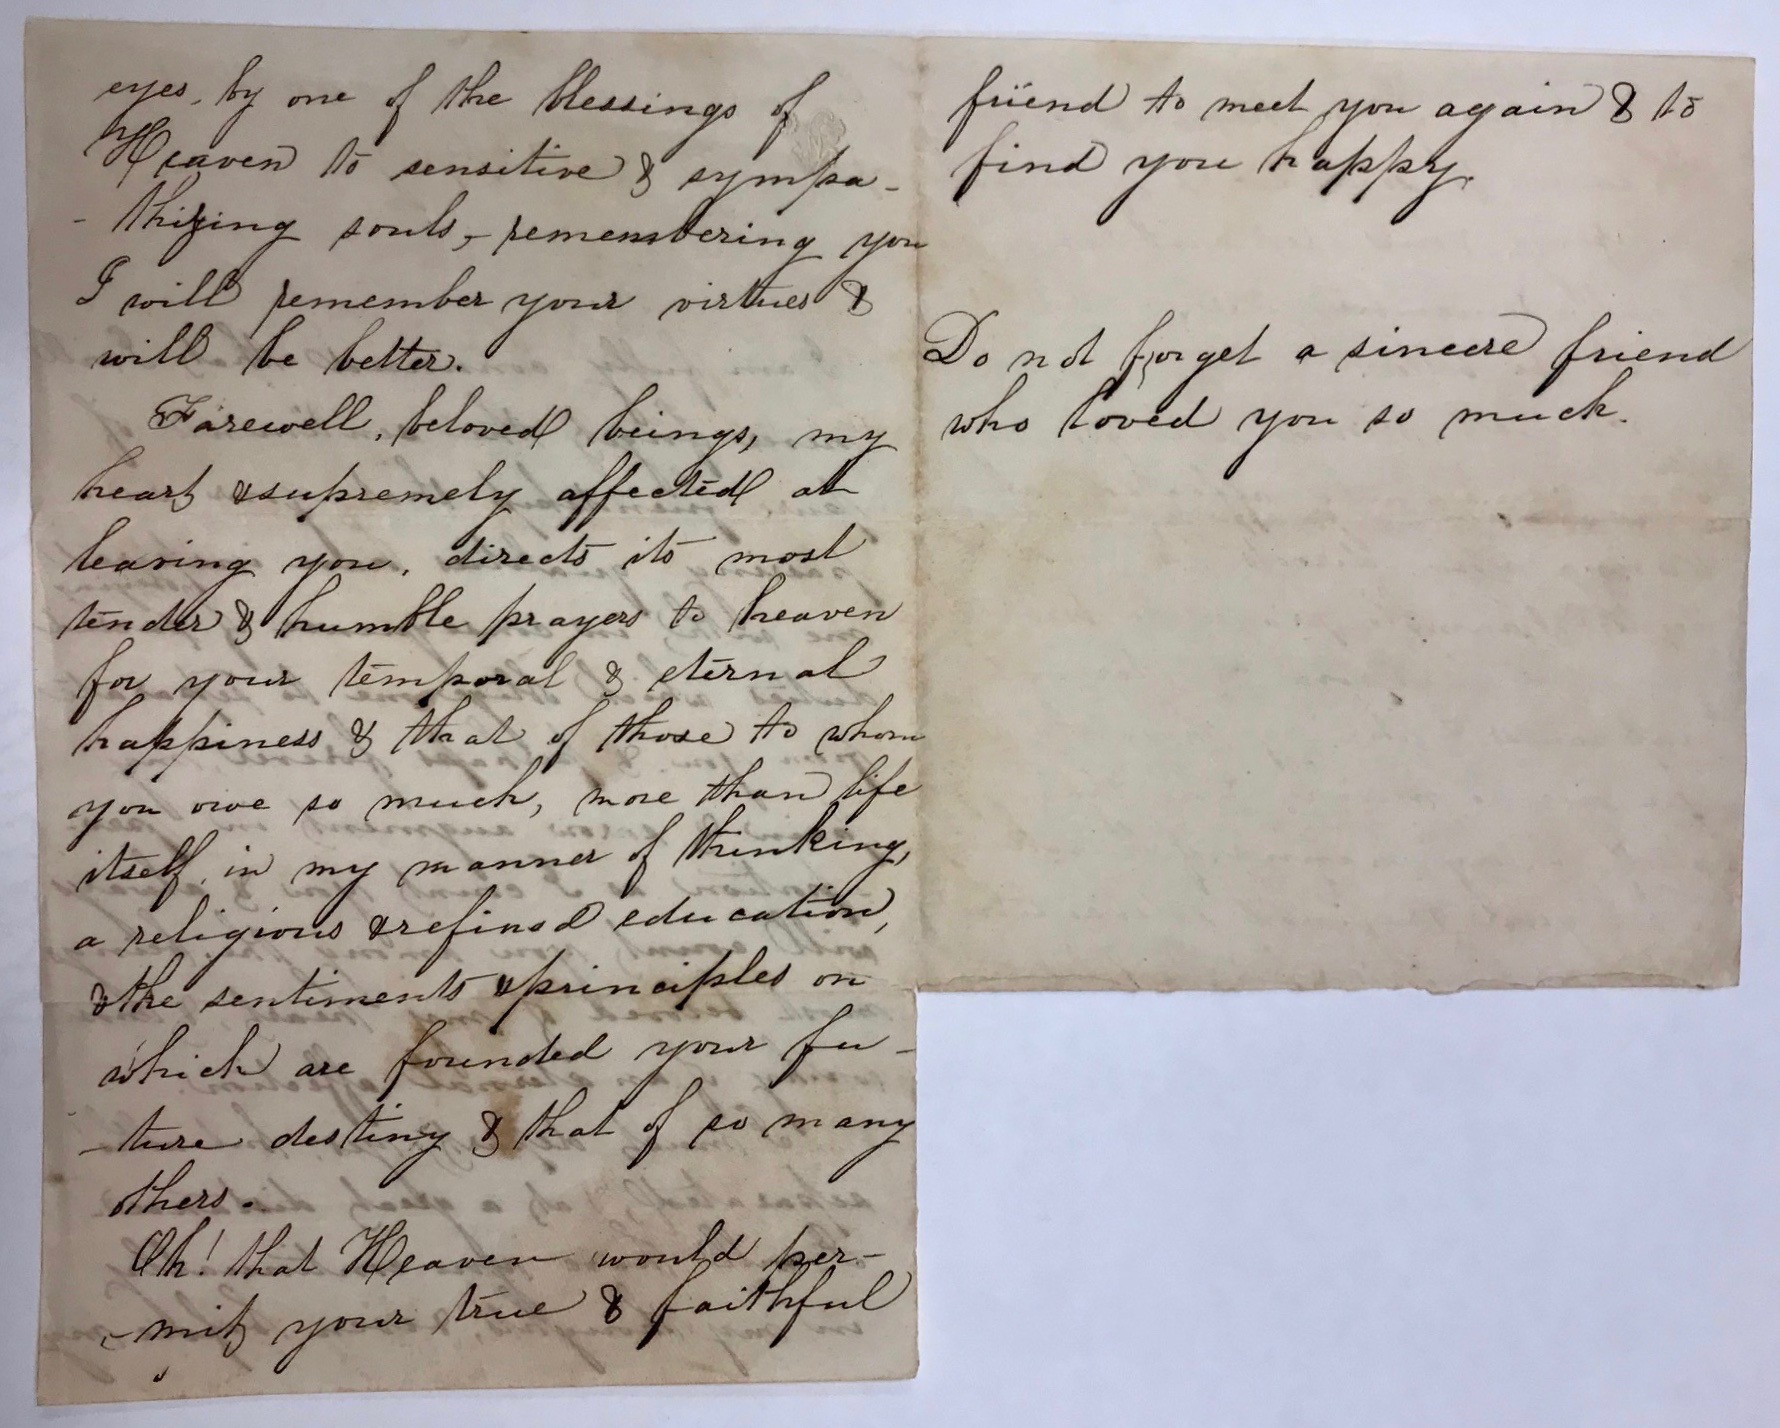 eyes, by one of the blessings of
Heaven to sensitive & sympa-
-thizing souls,- remembering you
I will remember your virtues &
will be better.
Farewell, beloved beings, my
heart & supremely affected at
leaving you, directs its most
tender & humble prayers to heaven
for your temporal & eternal
happiness & that of those to whom
you owe so much, more than life
itself, in my manner of thinking,
a religious & refined education,
& the sentiments & principles on
which are founded your fu-
-ture destiny & that of so many
others.
Oh! that Heaven would per-
-mit your true & faithful
friend to meet you again & to
find you happy.
Do not forget a sincere friend
who loved you so much.